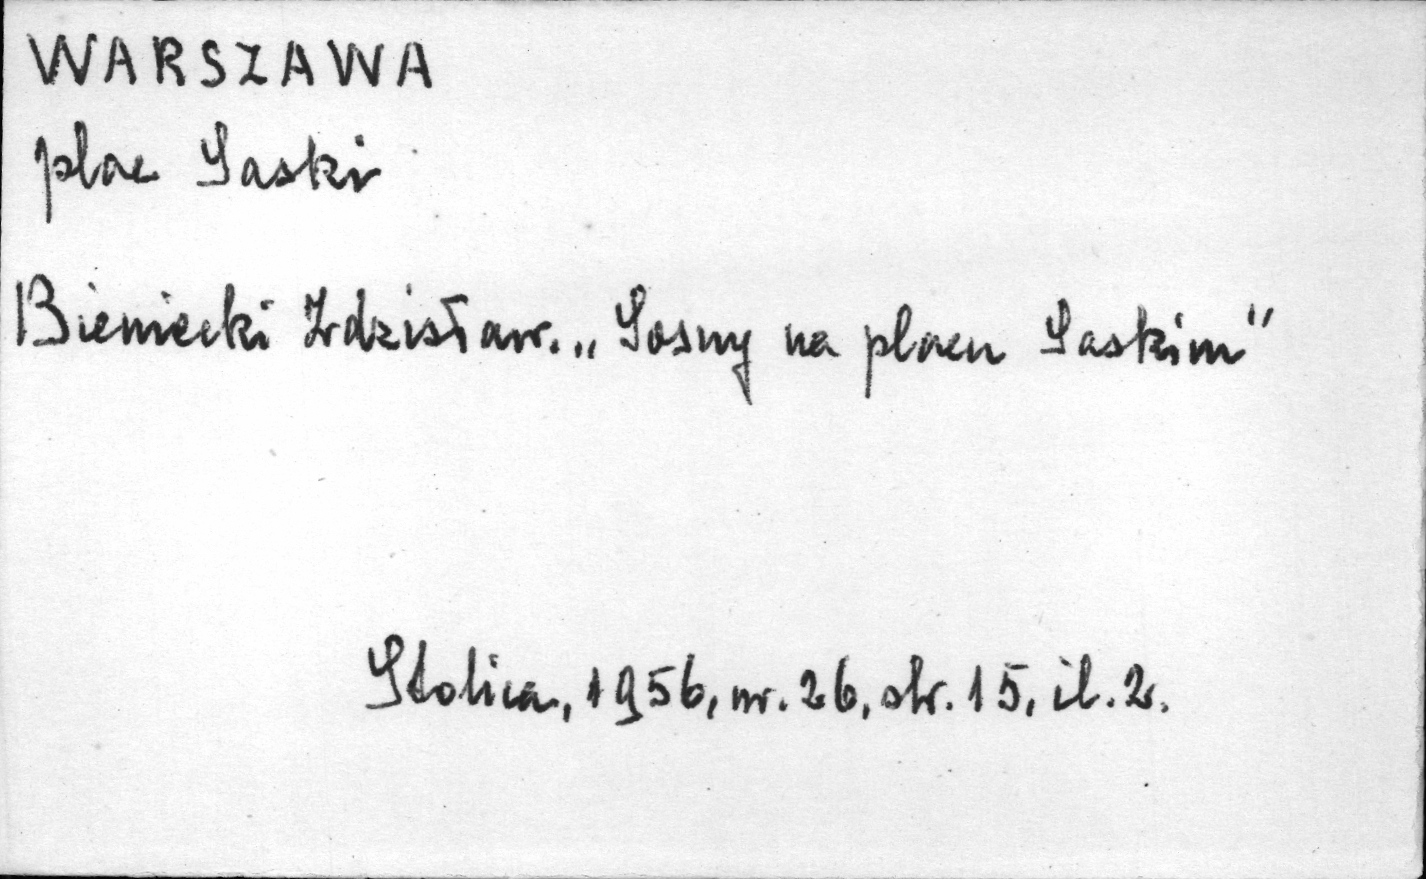 WARSZAWA
plac Saski
Bieniecki Zdzisław. „Sosny na placu Saskim”
Stolica, 1956, nr. 26, str. 15, il. 2.